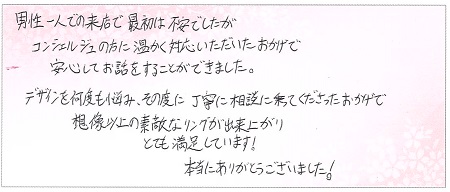 男性一人での来店で最初は不安でしたが
コンシェルジュの方に温かく対応いただいたおかげで
安心してお話をすることができました。
デザインを何度も悩み、その度に丁寧に相談に乗てくださったおかげで
想像以上の素敵なリングが出来上がり
とても満足しています!
本当にありがとうございました!